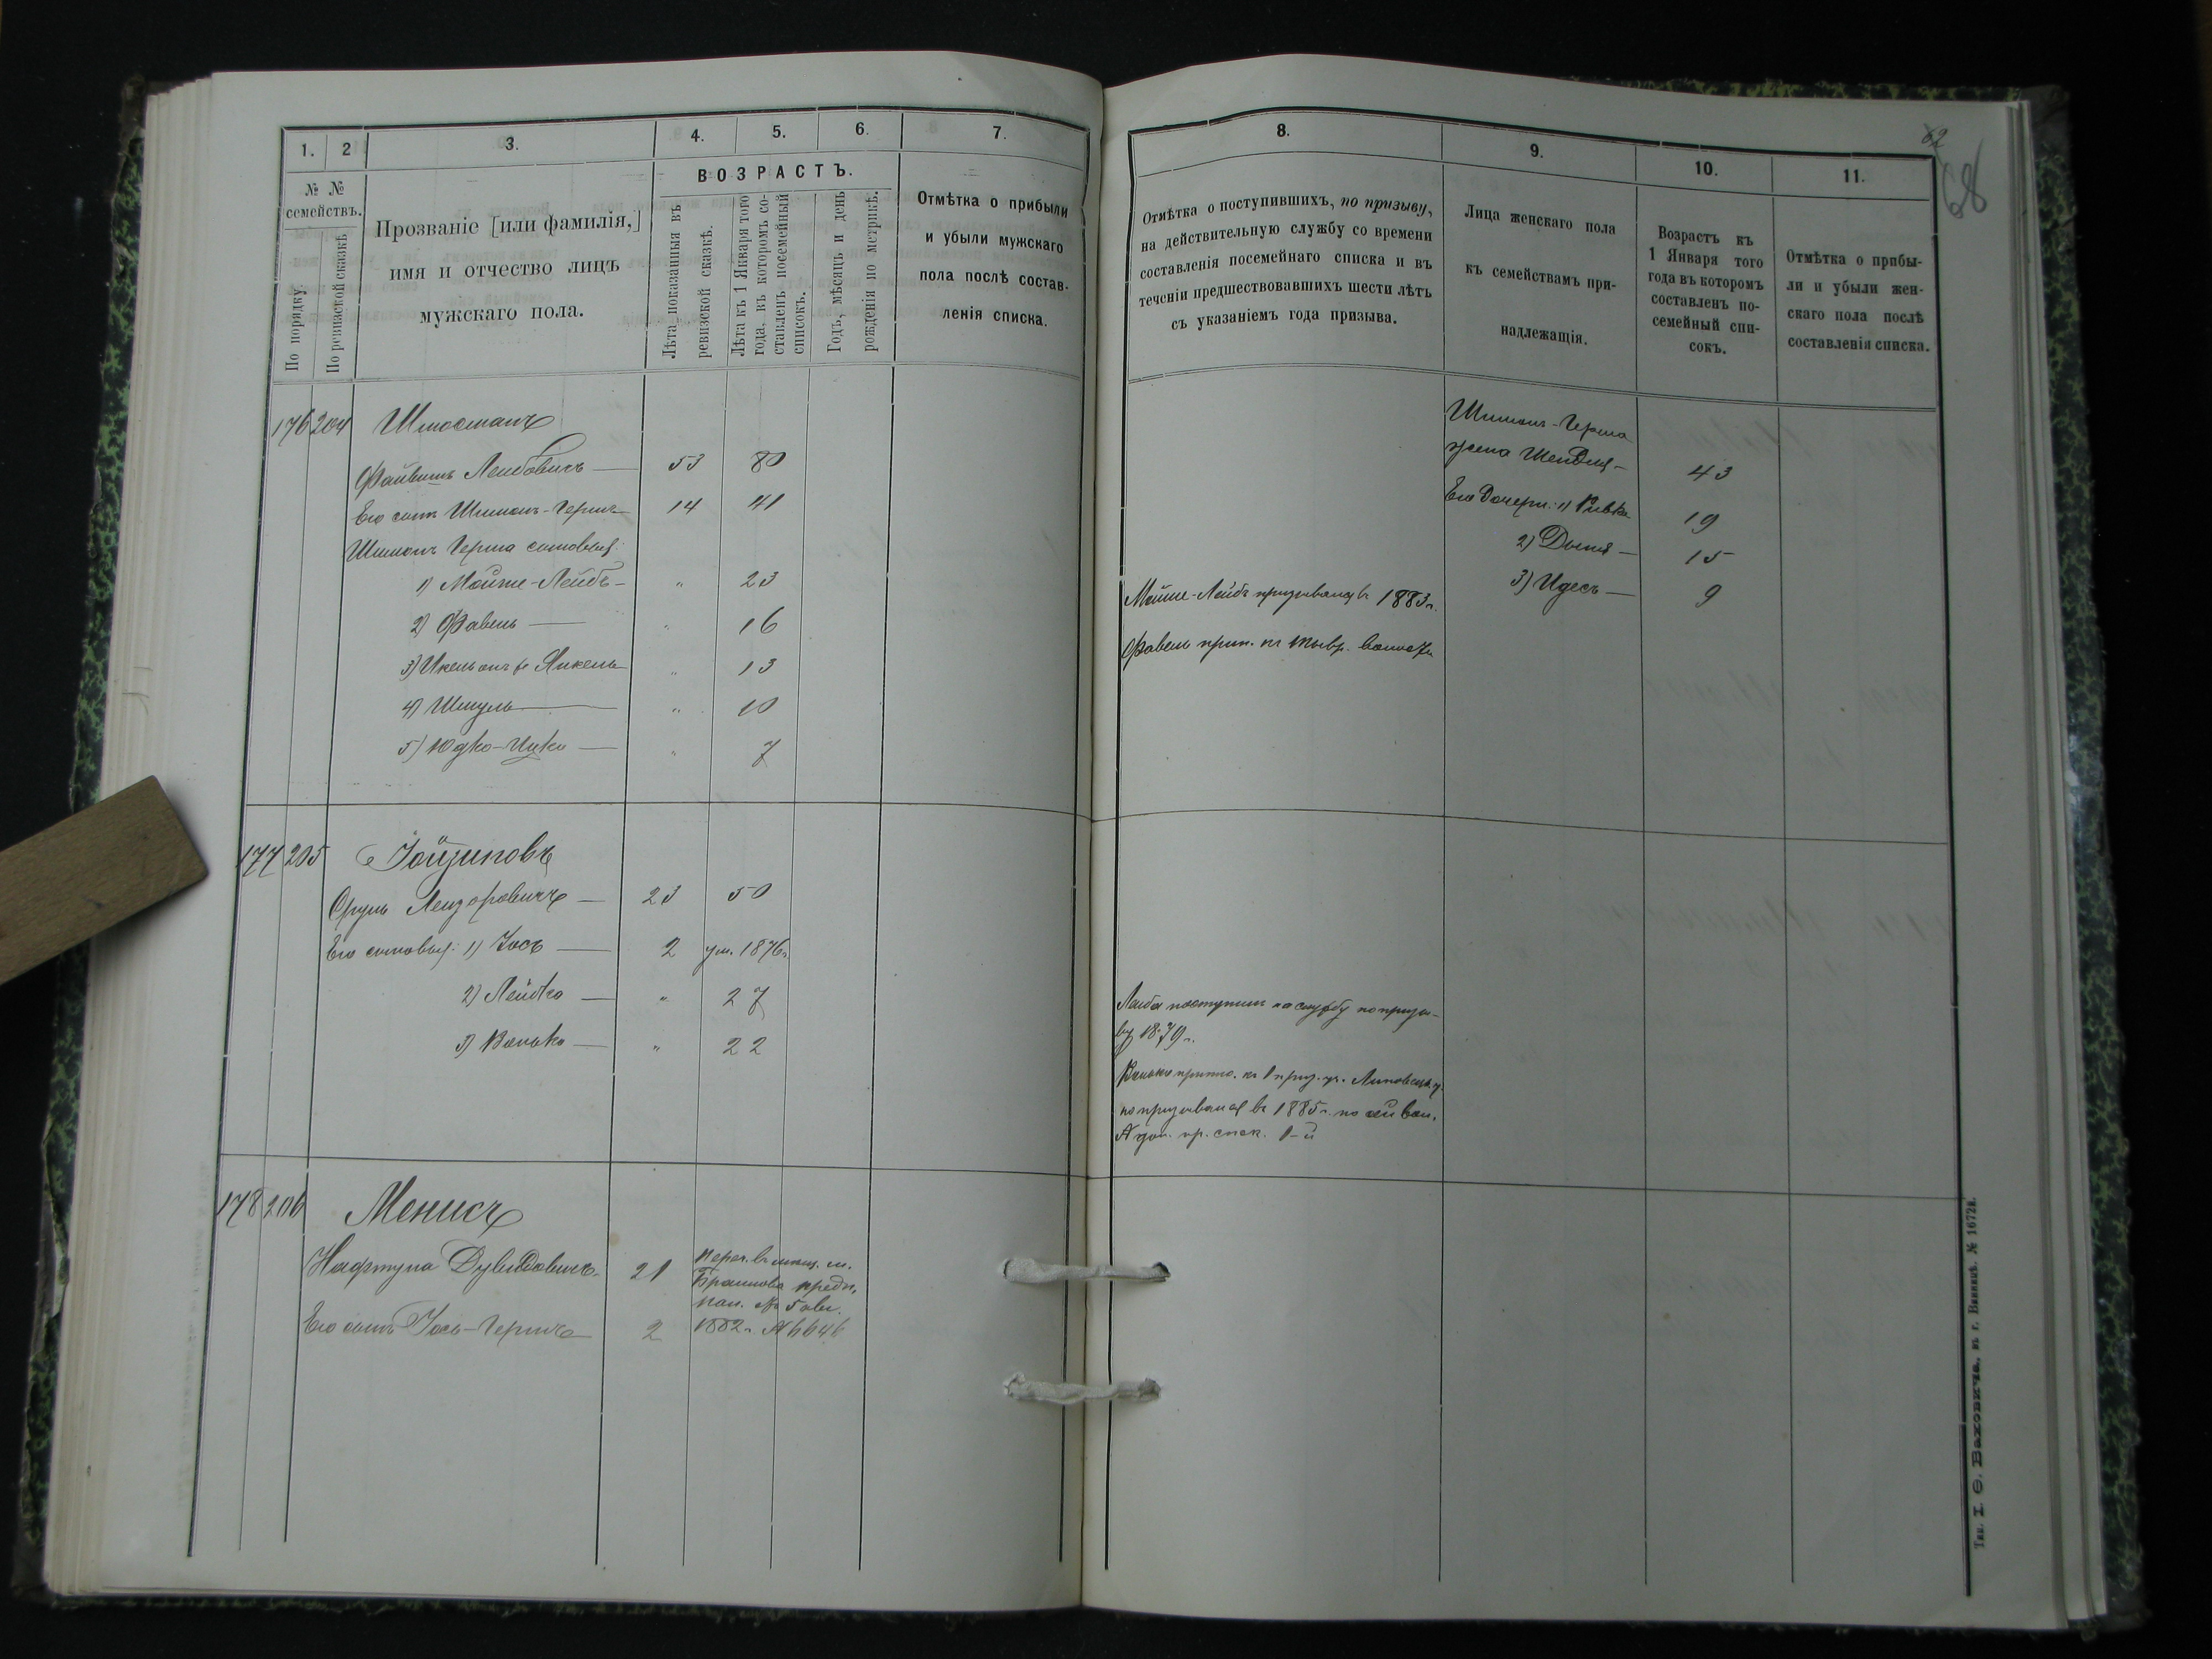 1.
2
3.
4.
5.
6.
7.
№ №
семействъ.
По порядку.
По ревизской сказкѣ
Прозваніе [или фамилія,]
имя и отчество лицъ
мужскаго пола.
ВОЗРАСТЪ.
Лѣта показанныя въ
ревизской сказкѣ.
Лѣта къ 1 Января того
года, въ которомъ со-
ставленъ посемейный
списокъ.
Годъ, мѣсяцъ и день
рожденія по метрикѣ.
Отмѣтка о прибыли
и убыли мужскаго
пола послѣ состав-
ленія списка.
176 204
Файвишъ Лейбовичъ — 53 80
Его сынъ Шимонъ-Гершъ 14 41
Шимонъ Герша сыновья:
1) Мойше-Лейбъ — " 23
2) Фавель — " 16
3) Янкель " 13
4) Шмуль — " 10
5) Юдко-Ицко — " 7
177 205
Сруль Лейзоровичъ — 23 50
Его сыновья: 1) Іось — 2 ум. 1876г.
2) Лейбко — " 27
3) — " 22
178 206 Менисъ
Нафтула Дувидовичъ 21 Переч. въ мѣщ. м.
Браилова предп.
Пал. 5 авг.
Его сынъ Іось-Гершъ 2 1882г. № 6646
8.
9.
10.
11.
62
68
Отмѣтка о поступившихъ, по призыву,
на дѣйствительную службу со времени
составленія посемейнаго списка и въ
теченіи предшествовавшихъ шести лѣтъ
съ указаніемъ года призыва.
Лица женскаго пола
къ семействамъ при-
надлежащія.
Возрастъ къ
1 Января того
года въ которомъ
составленъ по-
семейный спи-
сокъ.
Отмѣтка о прибы-
ли и убыли жен-
скаго пола послѣ
составленія списка.
Шимонъ-Герша
жена Шейндля — 43
Его дочери: 1) Ривка 19
2) Дыня — 15
3) Идесъ — 9
Мойше-Лейбъ призывался въ 1883г.
Фавель прип. къ Тывр. волости
Лейба поступилъ на службу по призы-
ву 1879г.
прип. къ 1 приз. уч. Липовецк. у.
по призывался въ 1885г. по
пр. спск. 1-й
Тип. І. Ѳ.Ваховича, въ г. Винницѣ. № 1672я.